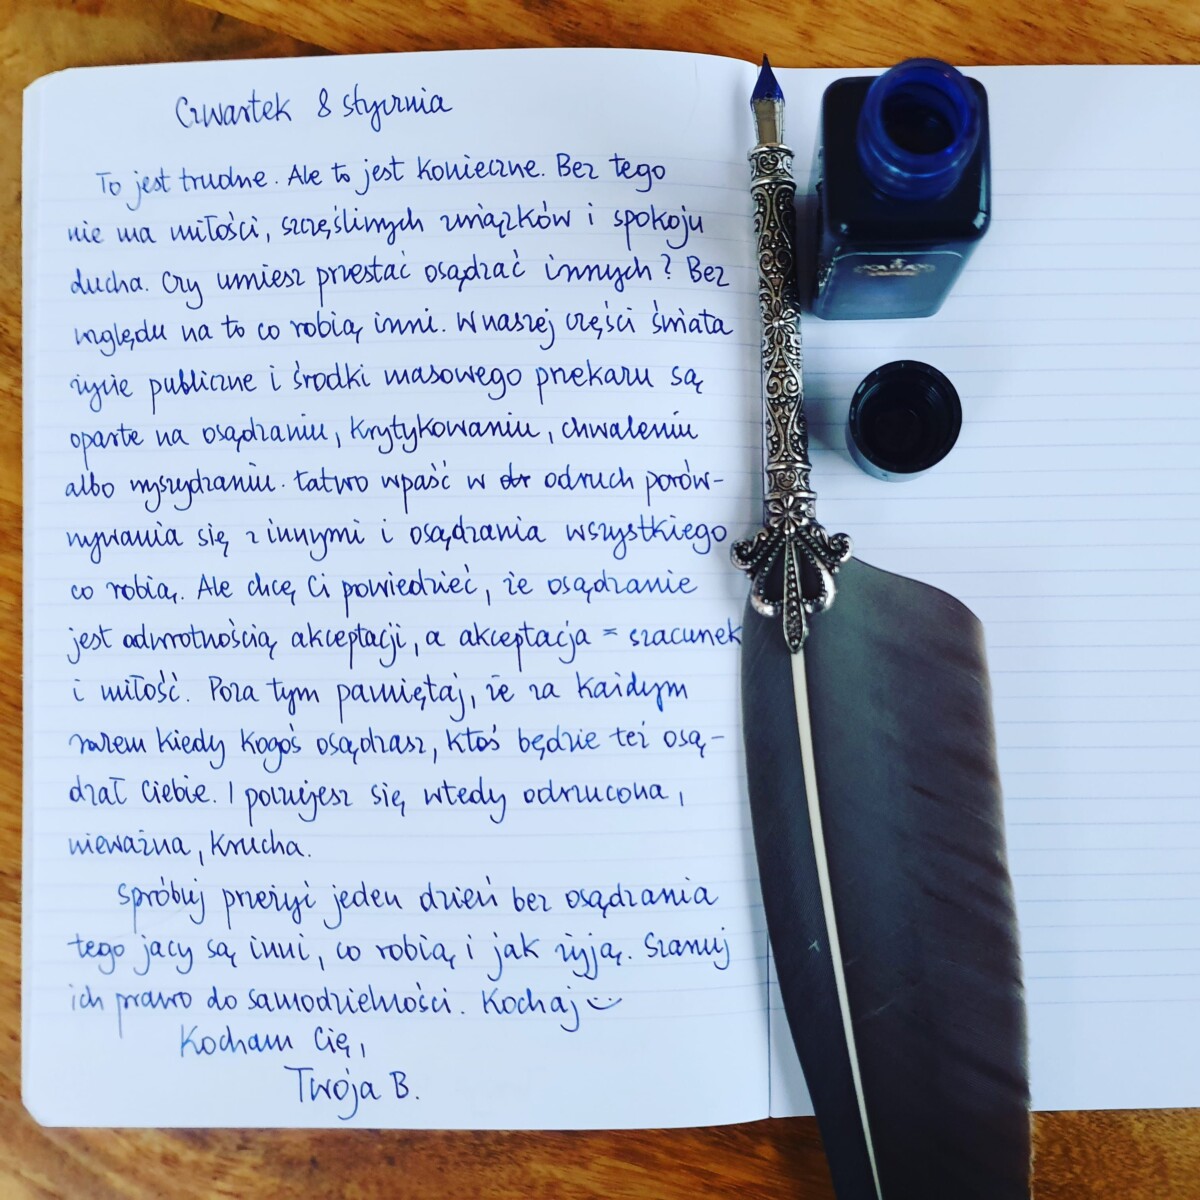 Czwartek 8 stycznia
To jest trudne. Ale to jest konieczne. Bez tego
nie ma miłości, szczęśliwych związków i spokoju
ducha. Czy umiesz przestać osądzać innych? Bez
względu na to co robią inni. W naszej części świata
życie publiczne i środki masowego przekazu są
oparte na osądzaniu, krytykowaniu, chwaleniu
albo wyszydzaniu. Łatwo wpaść w odruch porów-
nywania się z innymi i osądzania wszystkiego
co robią. Ale chcę Ci powiedzieć, że osądzanie
jest odwrotnością akceptacji, a akceptacja = szacunek
i miłość. Poza tym pamiętaj, że za każdym
razem kiedy kogoś osądzasz, ktoś będzie też osą-
dzał Ciebie. I poczujesz się wtedy odrzucona,
nieważna, krucha.
Spróbuj przeżyć jeden dzień bez osądzania
tego jacy są inni, co robią i jak żyją. Szanuj
ich prawo do samodzielności. Kochaj
Kocham Cię,
Twoja B.